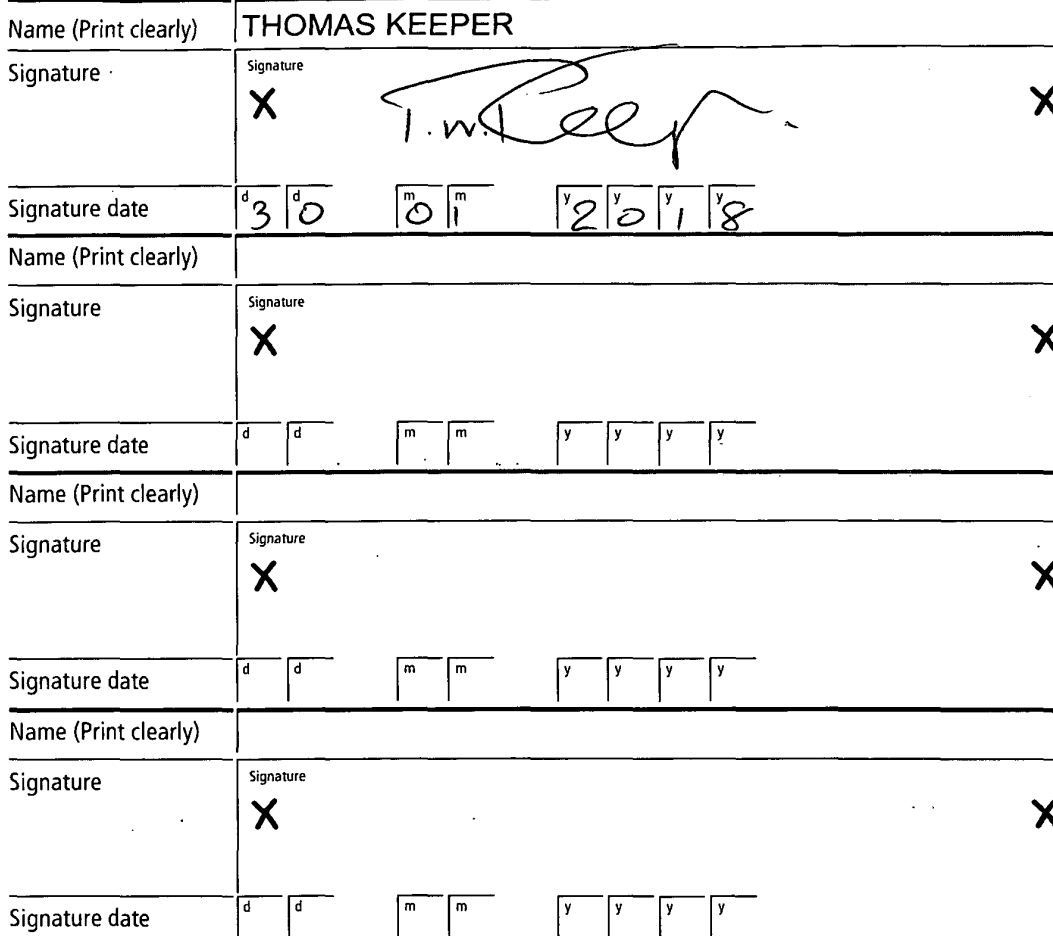 Name (Print clearly) THOMAS KEEPER
Signature Signature
X T.W. Keeper X
Signature date d3 d0 m0 m1 y2 y0 y1 y8
Name (Print clearly)
Signature Signature
X X
Signature date d d m m y y y y
Name (Print clearly)
Signature Signature
X X
Signature date d d m m y y y y
Name (Print clearly)
Signature Signature
X X
Signature date d d m m y y y y